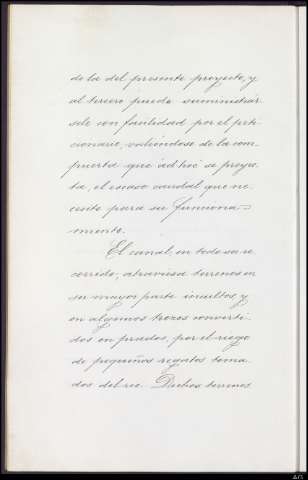 de la del presente proyecto, y
al tercero puede suministrár
sele con facilidad por el peti-
cionario, valiéndose de la com
puerta que ad hoc se proyec
ta, el escaso caudal que ne-
cesite para su funciona-
miento.
El canal, en todo su re
corrido, atraviesa terrenos en
su mayor parte incultos y
en algunos trozos converti-
dos en prados, por el riego
de pequeños regatos toma-
dos del rio. Dichos terrenos